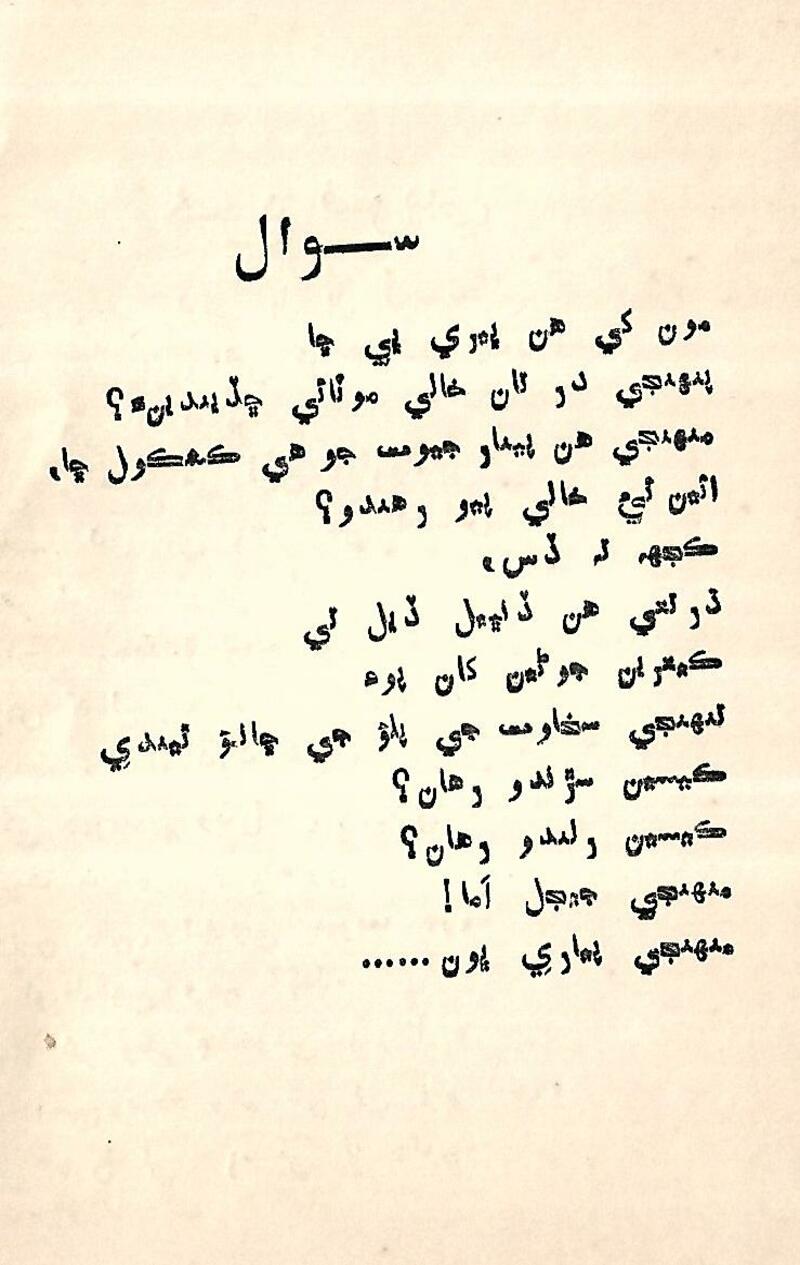 سوال
مون کي هن ڀيري ڀي ڇا
پنهنجي در تان خالي موٽائي ڇڏيندينءَ؟
منهنجي هن بيدار جيوت جو هي ڪشڪول ڇا،
ائين ئي خالي پيو رهندو؟
ڪجهہ تہ ڏس،
ڌرتي هن ڏٻيل ڏيل تي
ڪيترين جوڻين کان پوءِ
تنهنجي سخاوت جي پلؤ جي ڇانؤ ٿيندي
ڪيسين سڙندو رهان؟
ڪيسين رلندو رهان؟
منهنجي جيجل اَما!
منهنجي پياري ڀون......